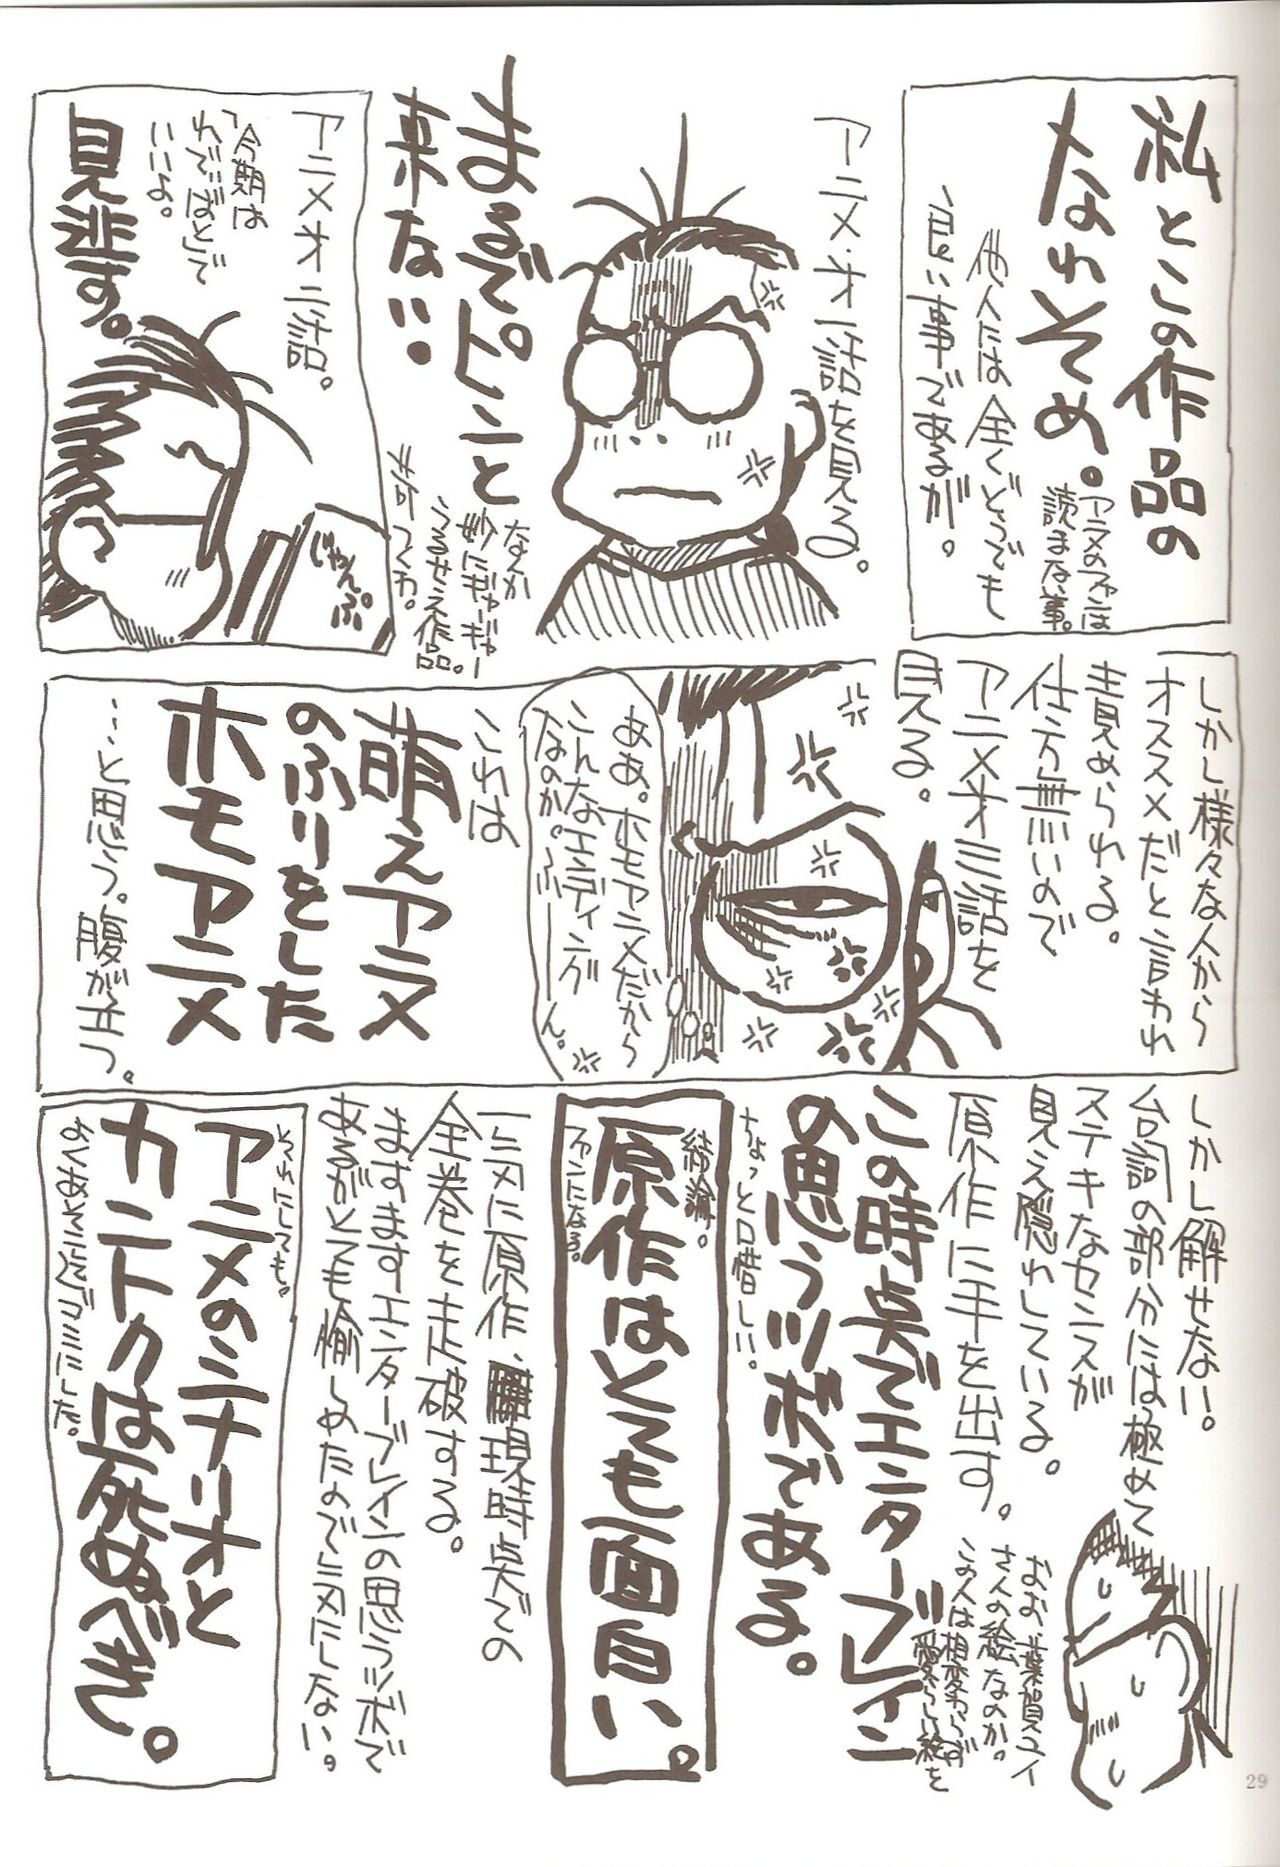 私とこの作品の
なれそめ。
アニメのファンは
読まな事。
他人には全くどうでも
良い事であるが。
アニメ・オ一話を見る。
まるでピンと
来ない。
なんか
妙にギャーギャー
うるせえ作品。
苛つくわ。
アニメオ二話。
「今期は
れでぃばとで
いいよ。
見逃す。
じゃんぷ
しかし様々な人から
オススメだと言われ
責められる。
仕方無いので
アニメオ三話を
見る。
ああ。ホモアニメだから
こんなエンディング
なのか。ふーーん。
これは
萌えアニメ
のふりをした
ホモアニメ
…と思う。腹が立つ。
しかし解せない。
台詞の部分には極めて
ステキなセンスが
見え隠れしている。
原作に手を出す。
おお、葉賀ユイ
さんの絵なのか。
この人は相変わらず
愛らしい絵を
この時点でエンターブレイン
の思うツボである。
ちょっと口惜しい。
結論。
原作はとても面白い。
ファンになる。
一気に原作、現時点での
全巻を走破する。
ますますエンターブレインの思うツボで
あるがとても愉しめたので気にしない。
それにしても。
アニメのシナリオと
カントクは死ぬべき。